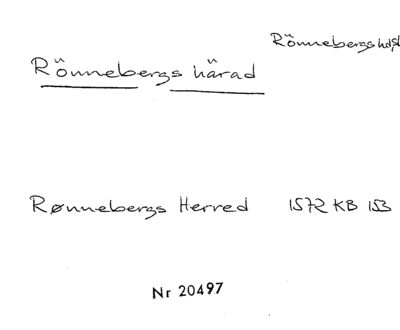 Rönnebergs hd
Rönnebergs härad
Rønnebergs Herred 1572 KB 153
Nr 20497